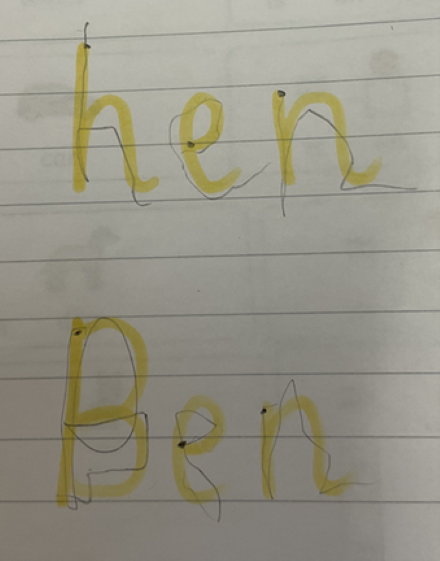 hen
Ben